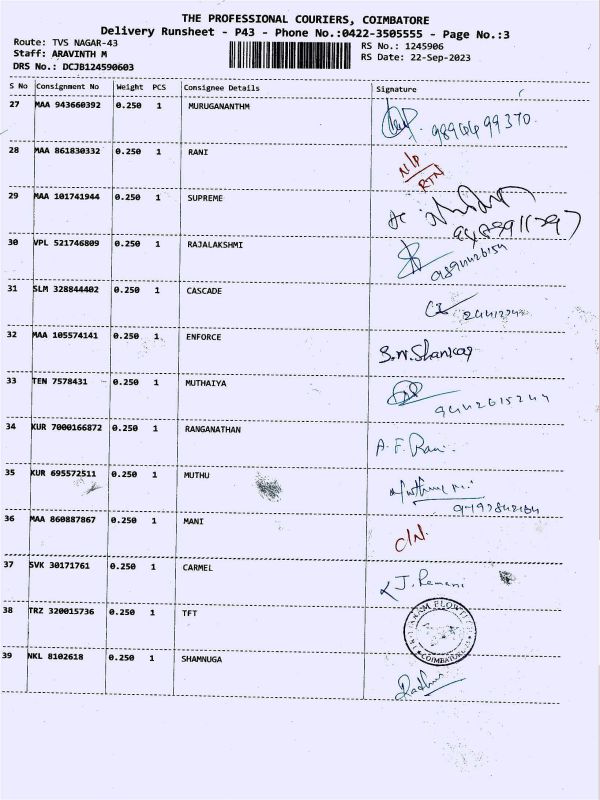 THE PROFESSIONAL COURIERS, COIMBATORE
Delivery Runsheet - P43 - Phone No.:0422-3505555 - Page No.:3
Route: TVS NAGAR-43
RS No.: 1245906
Staff: ARAVINTH M
RS Date: 22-Sep-2023
DRS No.: DCJB124590603
S No Consignment No Weight PCS Consignee Details Signature
27 MAA 943660392 0.250 1 MURUGANANTHM
28 MAA 861830332 0.250 1 RANI N/P
RTN
29 MAA 101741944 0.250 1 SUPREME
30 VPL 521746809 0.250 1 RAJALAKSHMI
31 SLM 328844402 0.250 1 CASCADE
32 MAA 105574141 0.250 1 ENFORCE S.N.Shankar
33 TEN 7578431 0.250 1 MUTHAIYA
34 KUR 7000166872 0.250 1 RANGANATHAN A.F.Rani
35 KUR 695572511 0.250 1 MUTHU
36 MAA 860887867 0.250 1 MANI C/N.
37 SVK 30171761 0.250 1 CARMEL J. Remani
38 TRZ 320015736 0.250 1 TFT COIMBATORE
39 NKL 8102618 0.250 1 SHAMNUGA